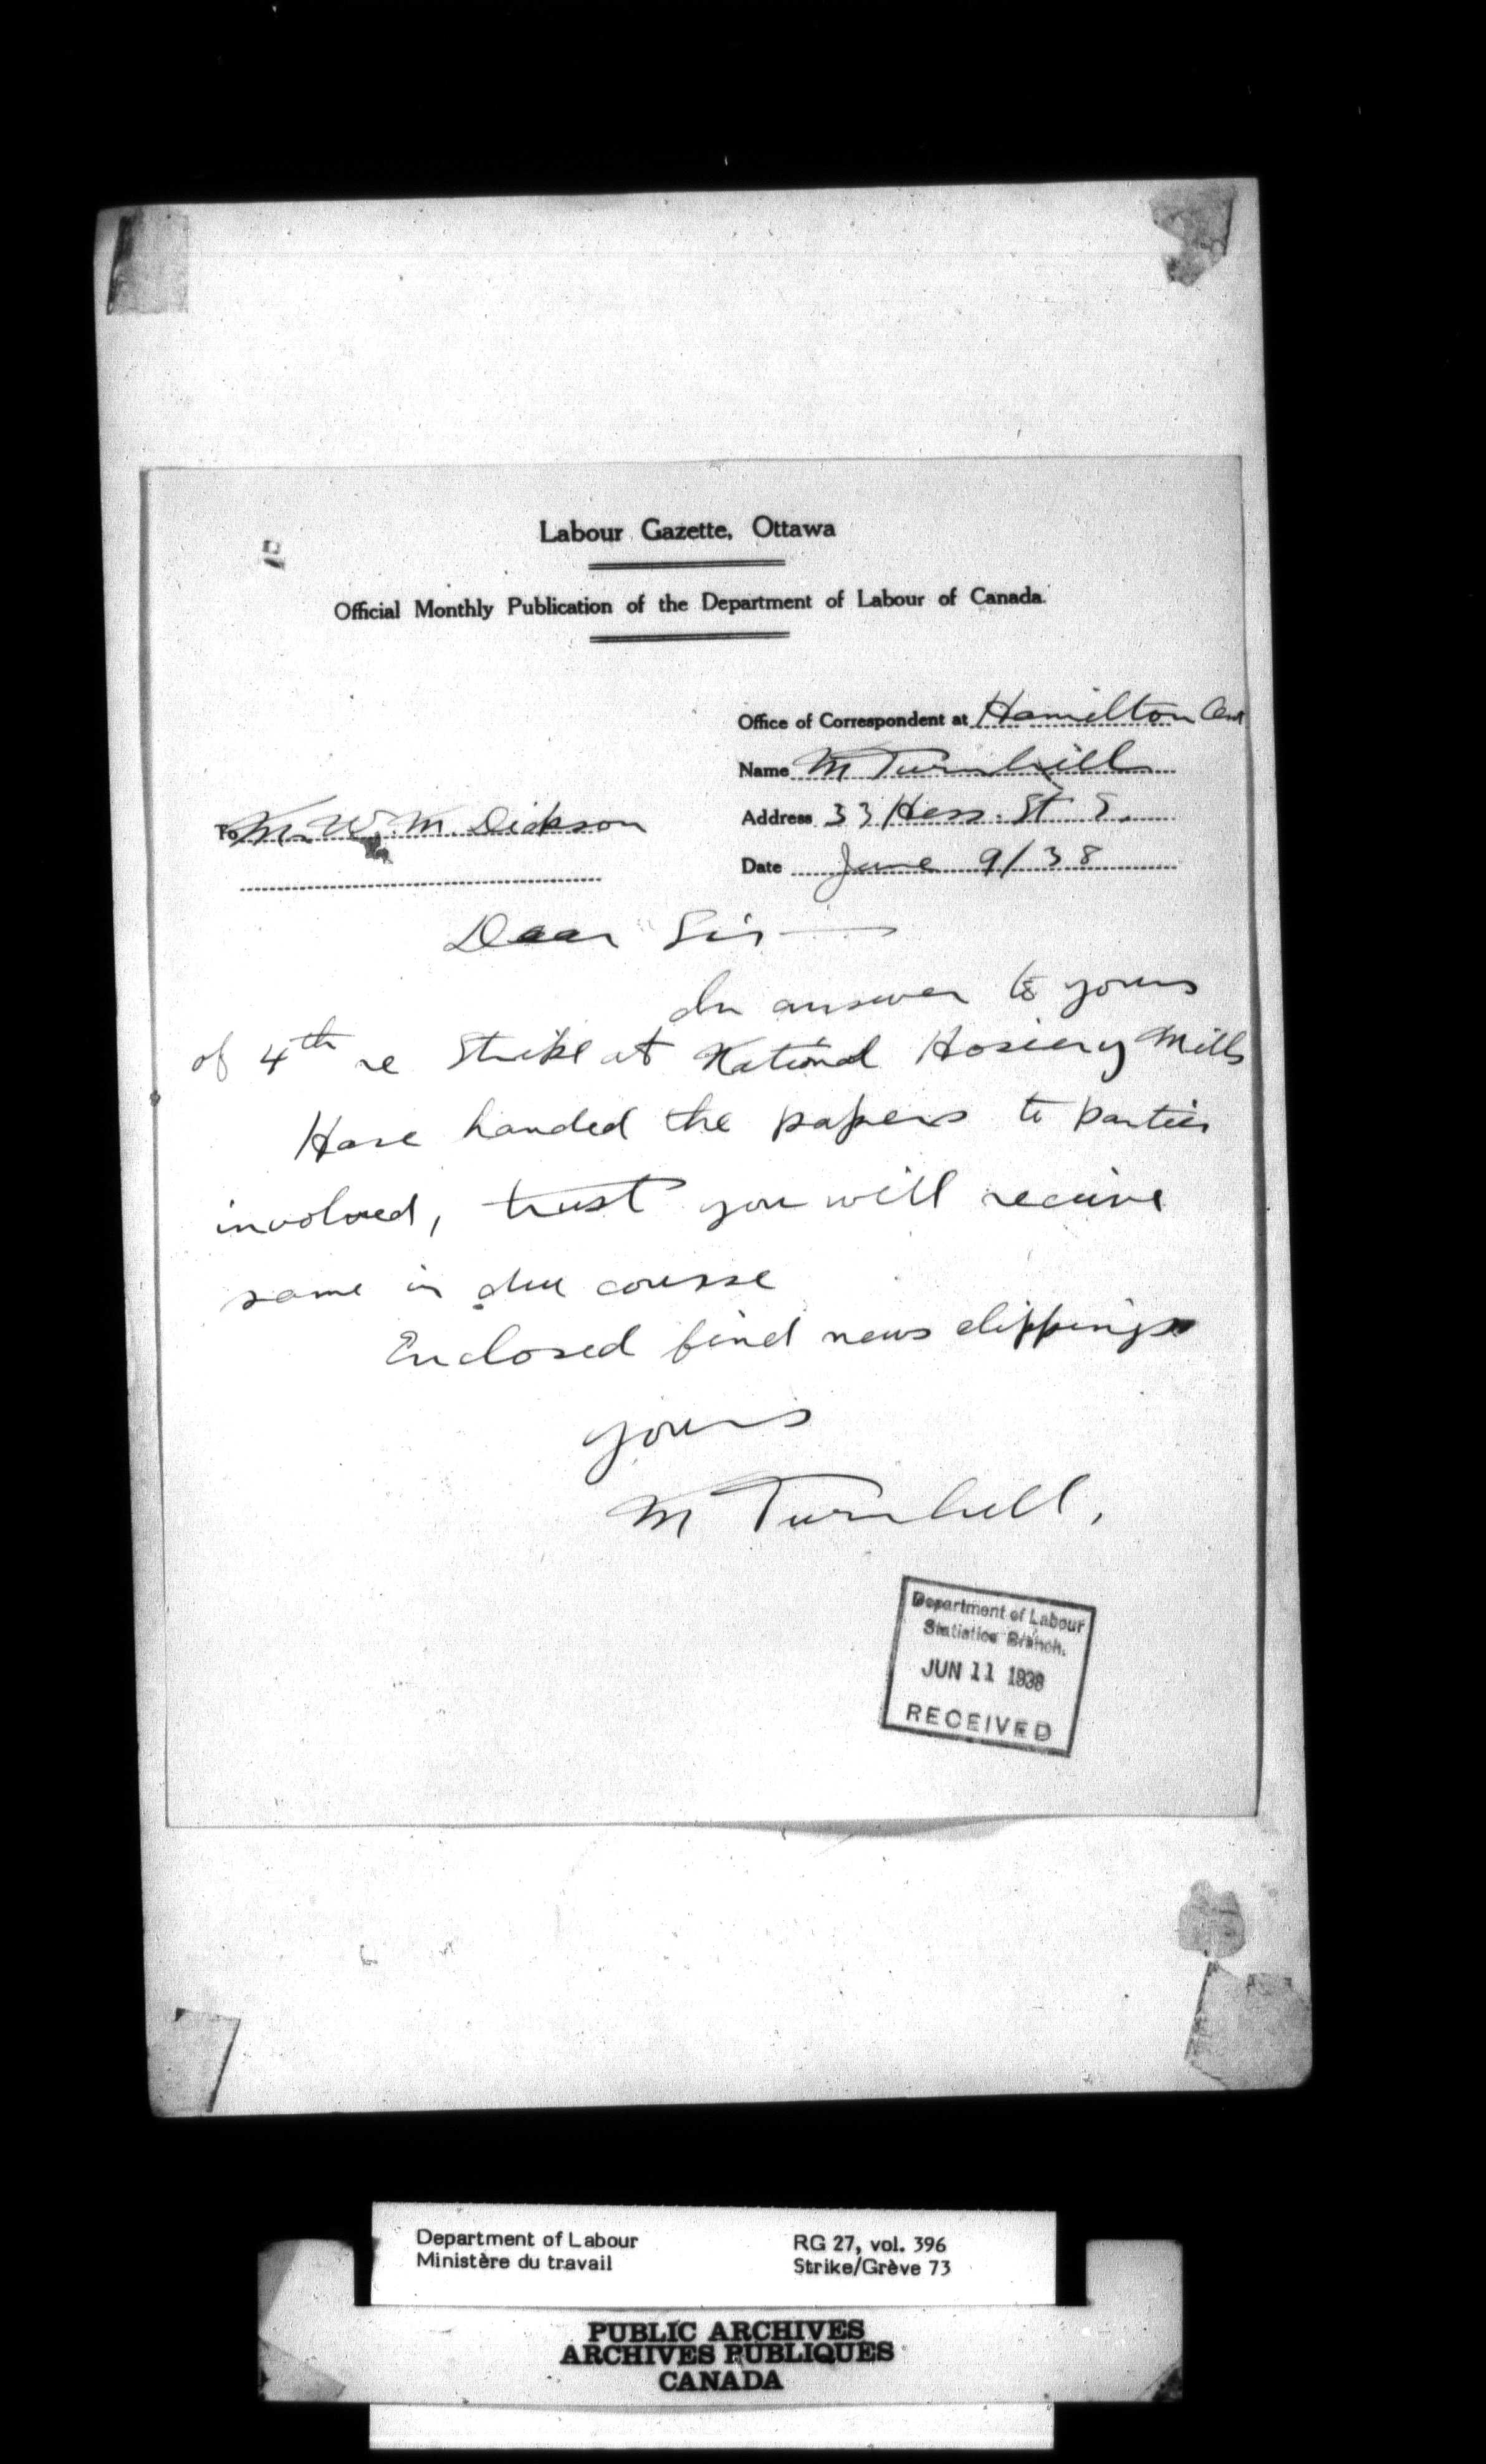 Labour Gazette, Ottawa
Official Monthly Publication of the Department of Labour of Canada.
Office of Correspondent at Hamilton Ont
Name M Turnbull
To Mr W. M. Dickson
Address 33 Hess. St S.
Date June 9/38
Dear Sir —
In answer to yours
of 4th re Strike at National Hosiery Mills
Have handed the papers to parties
involved, trust you will receive
same in due course
Enclosed find news clippings
yours
M Turnbull,
Department of Labour
Statistics Branch.
JUN 11 1938
RECEIVED
Department of Labour
Ministère du travail
RG 27, vol. 396
Strike/Grève 73
PUBLIC ARCHIVES
ARCHIVES PUBLIQUES
CANADA